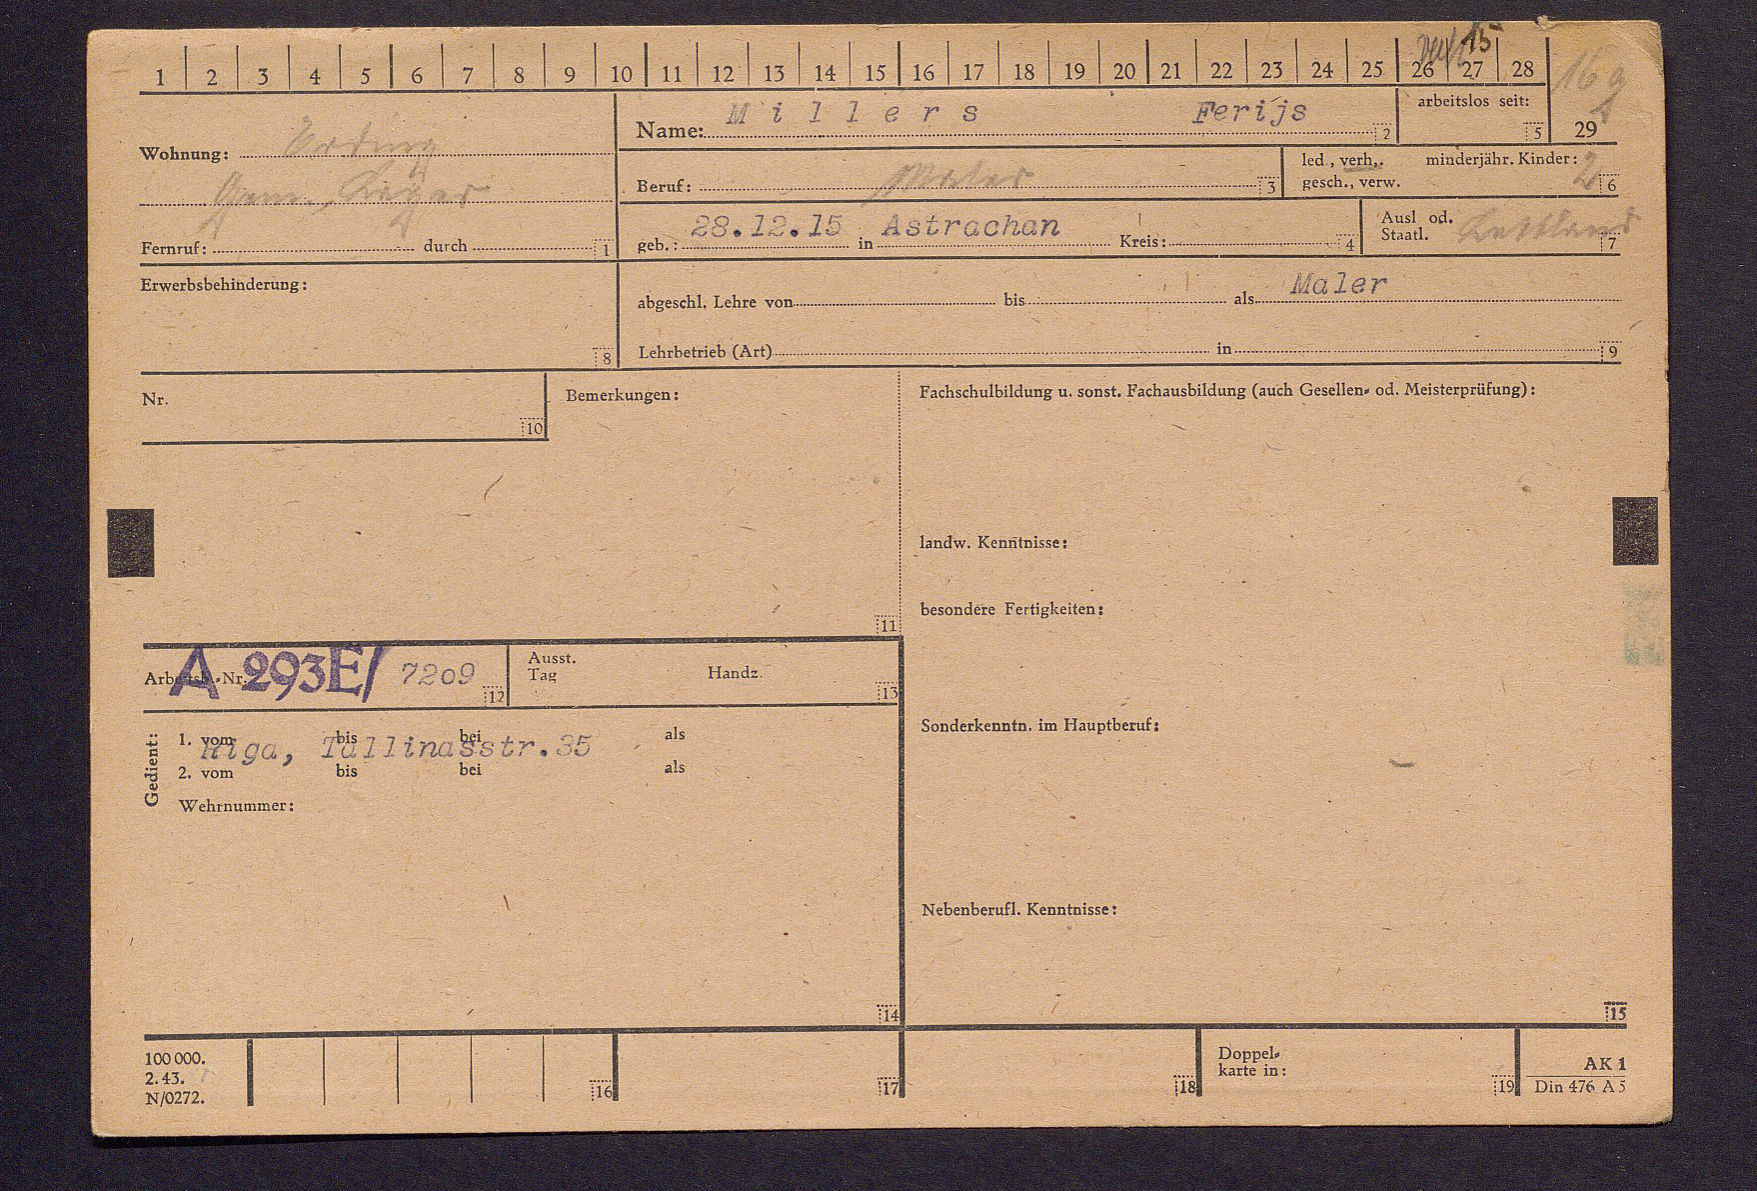 1 2 3 4 5 6 7 8 9 10 11 12 13 14 15 16 17 18 19 20 21 22 23 24 25 26 27 28
15
16 g
29
Wohnung: Erding
Gem. Lager
Fernruf: durch 1
Name: Millers Ferijs 2
arbeitslos seit: 5
Beruf: Maler 3
led., verh., minderjähr. Kinder: 2
gesch., verw. 6
geb.: 28.12.15 in Astrachan Kreis: 4
Ausl od. Lettland
Staatl. 7
Erwerbsbehinderung:
8
abgeschl. Lehre von bis als Maler
Lehrbetrieb (Art) in 9
Nr.
10
Bemerkungen:
11
Fachschulbildung u. sonst. Fachausbildung (auch Gesellen- od. Meisterprüfung):
landw. Kenntnisse:
besondere Fertigkeiten:
Sonderkenntn. im Hauptberuf:
Nebenberufl. Kenntnisse:
15
Arbeitsb.-Nr. A 293E/ 7209 12
Ausst.
Tag Handz. 13
Gedient:
1. vom bis bei als
Riga, Tallinasstr.35
2. vom bis bei als
Wehrnummer:
14
100 000.
2. 43.
N/0272.
16
17
18
Doppel-
karte in: 19
AK 1
Din 476 A 5